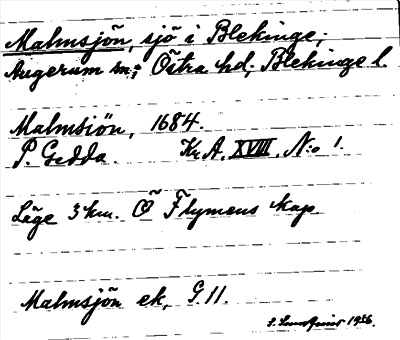 Malmsjön, sjö i Blekinge;
Augerum sn; Östra hd, Blekinge l.
Malmsiön, 1684.
P. Gedda. Kr. A. XVIII. N:o 1.
Läge 3 km. Ö Flymens kap.
Malmsjön ek, G. 11.
S. 1956.